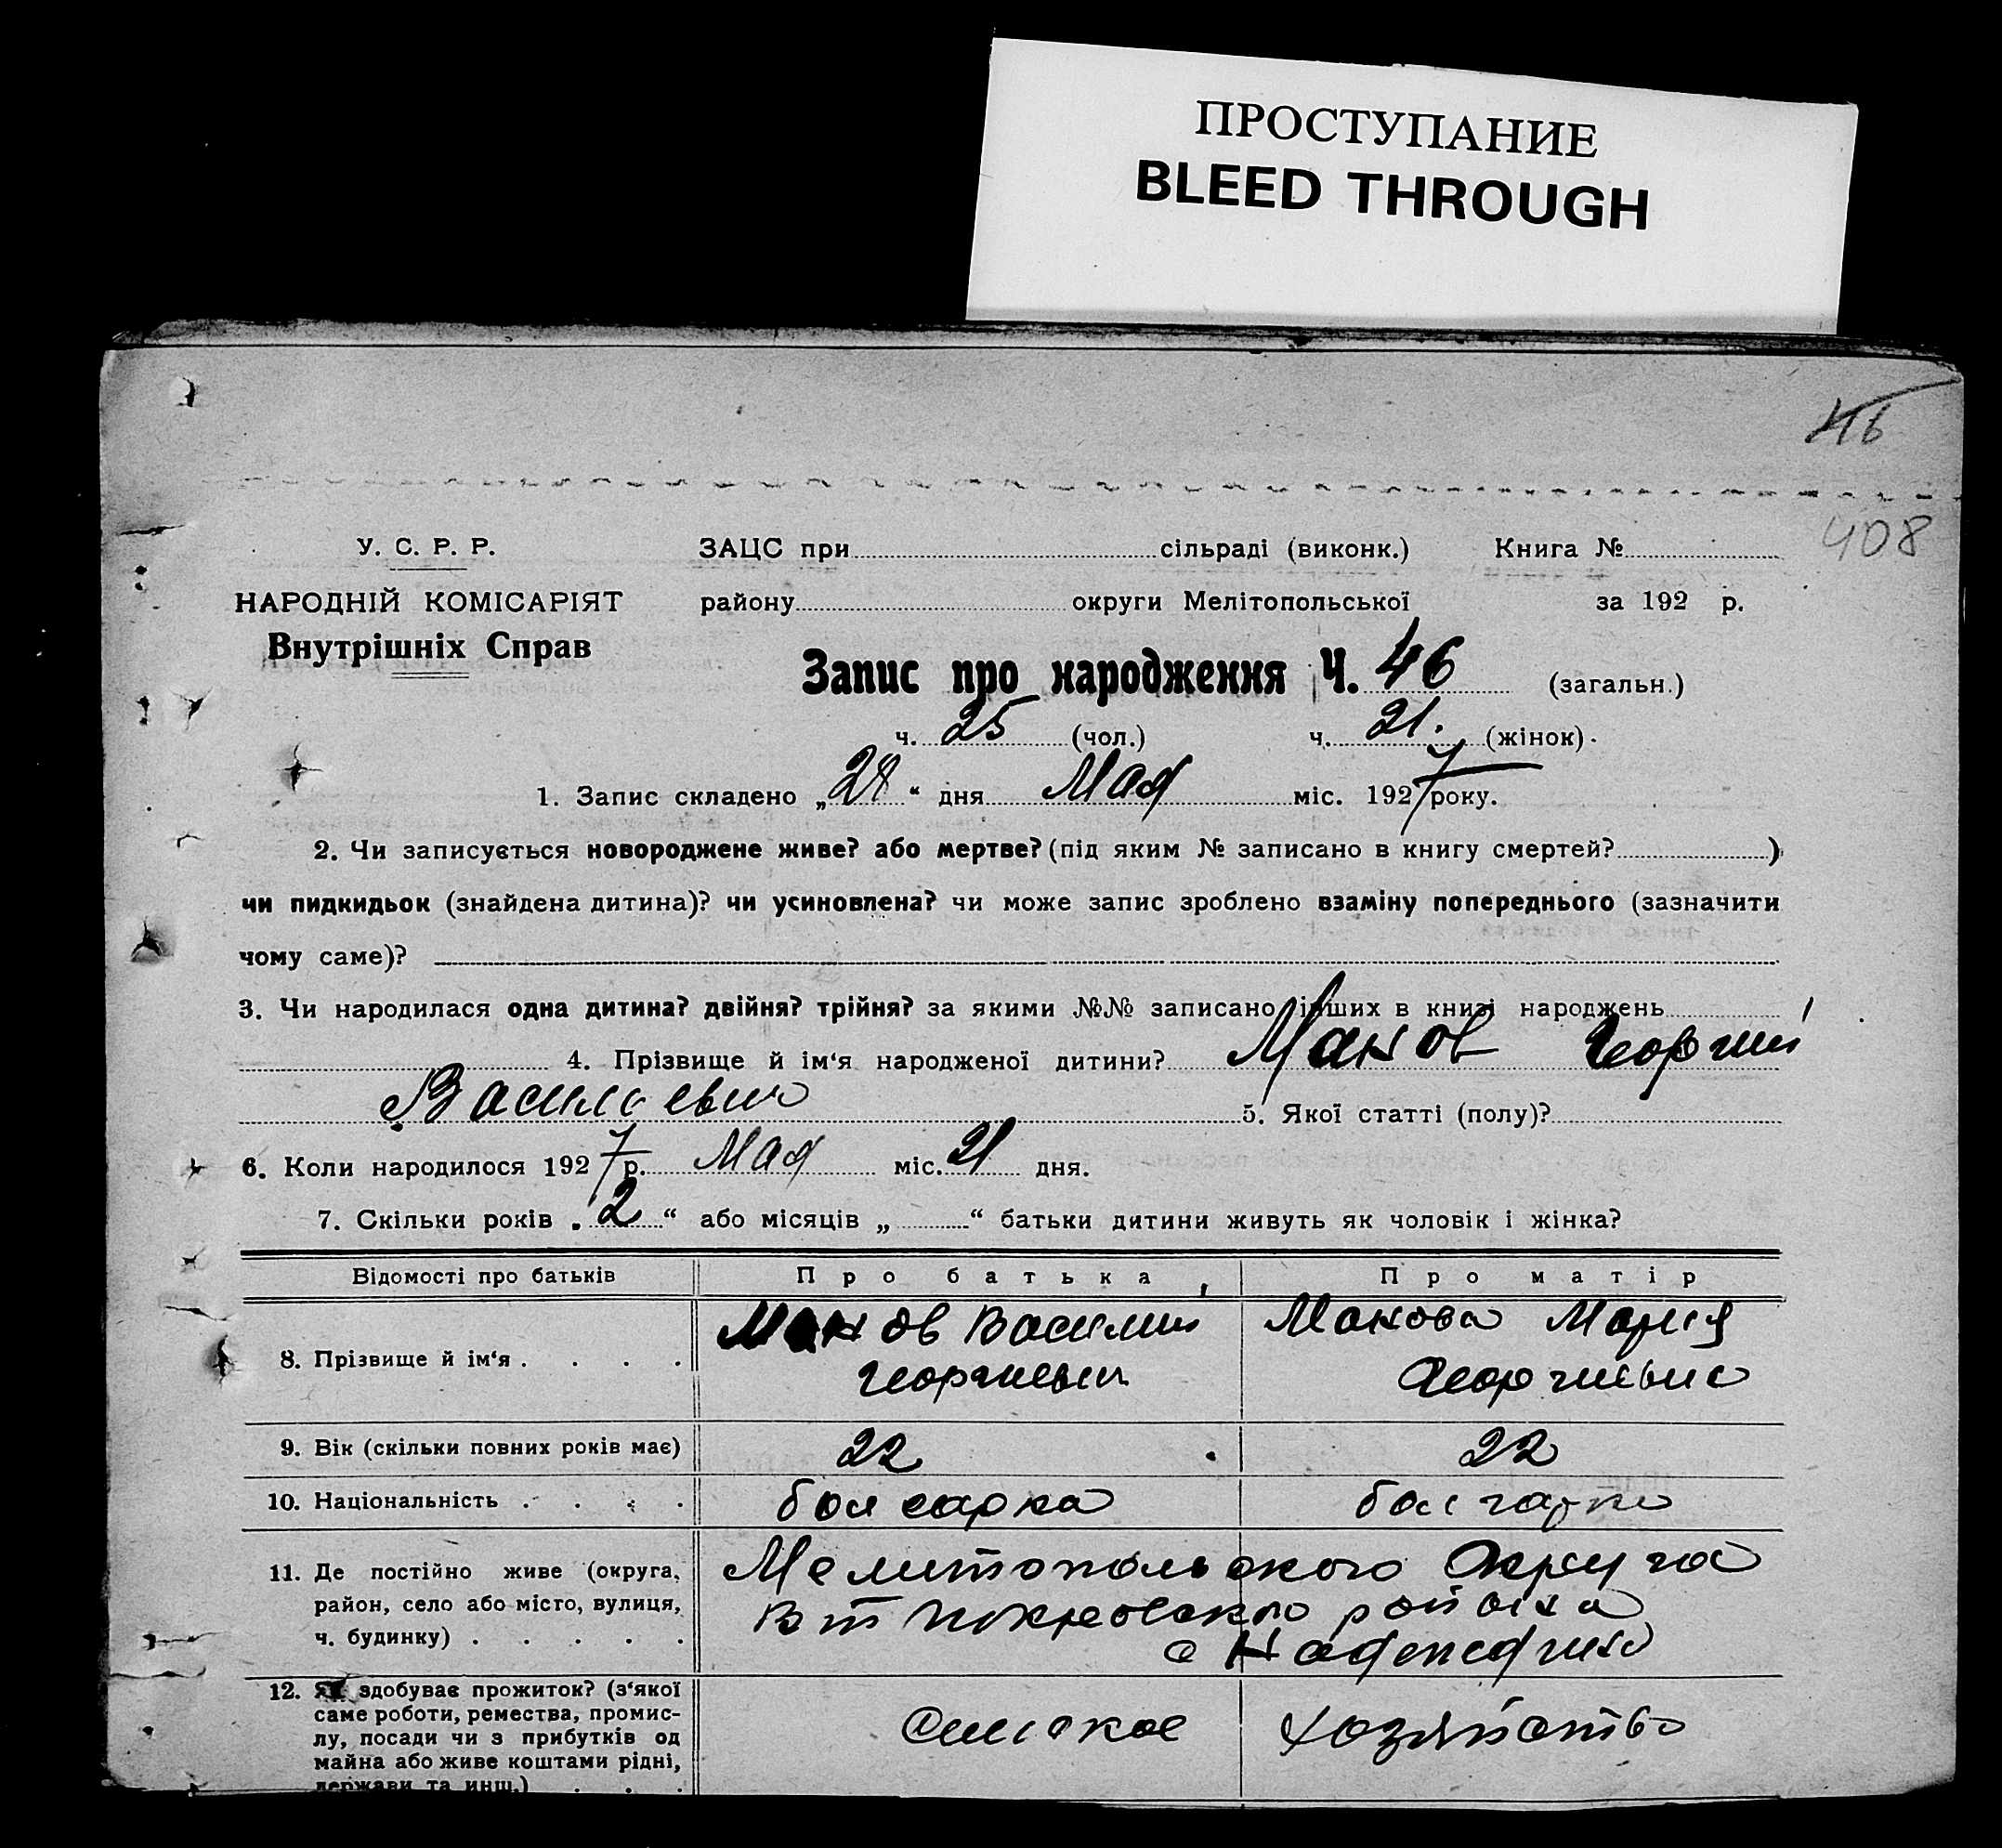 ПРОСТУПАНИЕ
BLEED THROUGH
46
408
У. С. Р. Р. ЗАЦС при сільраді (виконк.) Книга №
НАРОДНІЙ КОМІСАРІЯТ району округи Мелітопольської за 192 р.
Внутрішніх Справ
Запис про народження Ч. 46 (загальн.)
ч. 25 (чол.) ч. 21. (жінок)
1. Запис складено „28“ дня Мая міс. 1927 року.
2. Чи записується новороджене живе? або мертве? (під яким № записано в книгу смертей? )
чи пидкидьок (знайдена дитина)? чи усиновлена? чи може запис зроблено взаміну попереднього (зазначити
чому саме)?
3. Чи народилася одна дитина? двійня? трійня? за якими №№ записано інших в книзі народжень
4. Прізвище й ім‘я народженої дитини? Манов Георгий
Васильевич 5. Якої статті (полу)?
6. Коли народилося 1927 р. Мая міс. 21 дня.
7. Скільки років „2“ або місяців „ “ батьки дитини живуть як чоловік і жінка?
Відомості про батьків Про батька Про матір
8. Прізвище й ім‘я . . . . Манов Василий Манова Мария
Георгиевич Георгиевна
9. Вік (скільки повних років має) 22 22
10. Національність . . . . болгарка болгарка
11. Де постійно живе (округа, Мелитопольского Округа
район, село або місто, вулиця, покровского района
ч. будинку) . . . . . с
12. Як здобуває прожиток? (з‘якої
саме роботи, ремества, промис- Сельское хозяйство
лу, посади чи з прибутків од
майна або живе коштами рідні,
держави та инш.) . . .